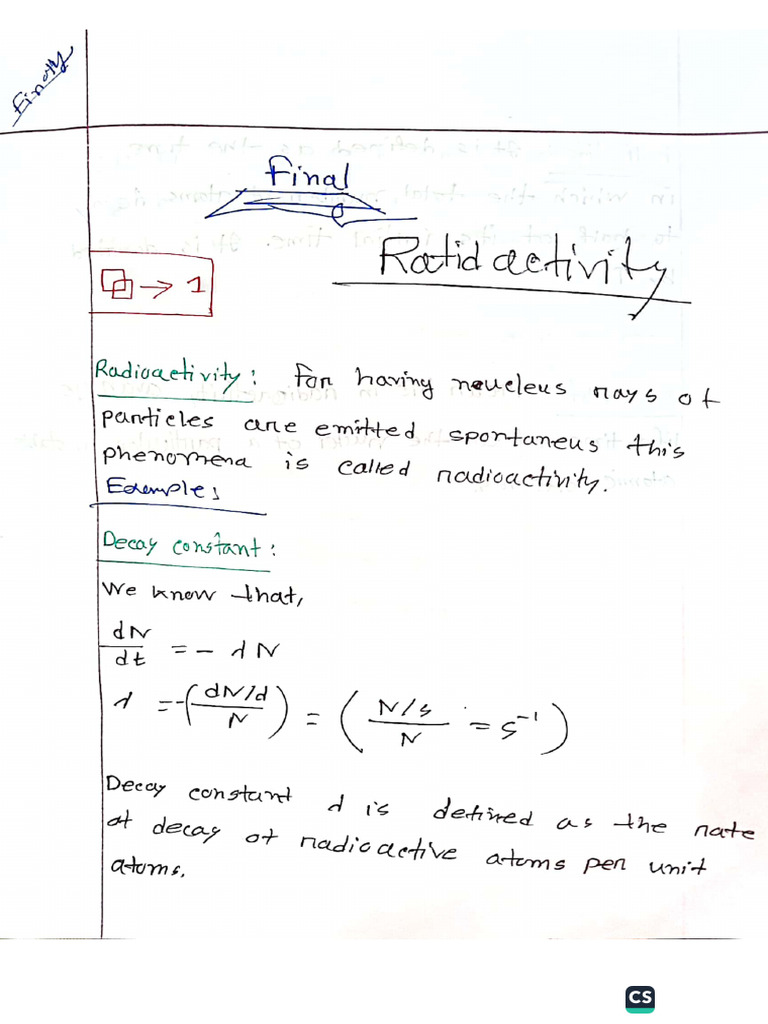 Finaly
Final
Ratid activity
→ 1
Radioactivity: For having neucleus rays of
particles are emitted spontaneus this
phenomena is called radioactivity.
Examples
Decay constant:
We know that,
dN/dt = - λN
λ = -(dN/d / N) = (N/s / N = s⁻¹)
Decay constant λ is defined as the rate
of decay of radioactive atoms per unit
atoms.
CS